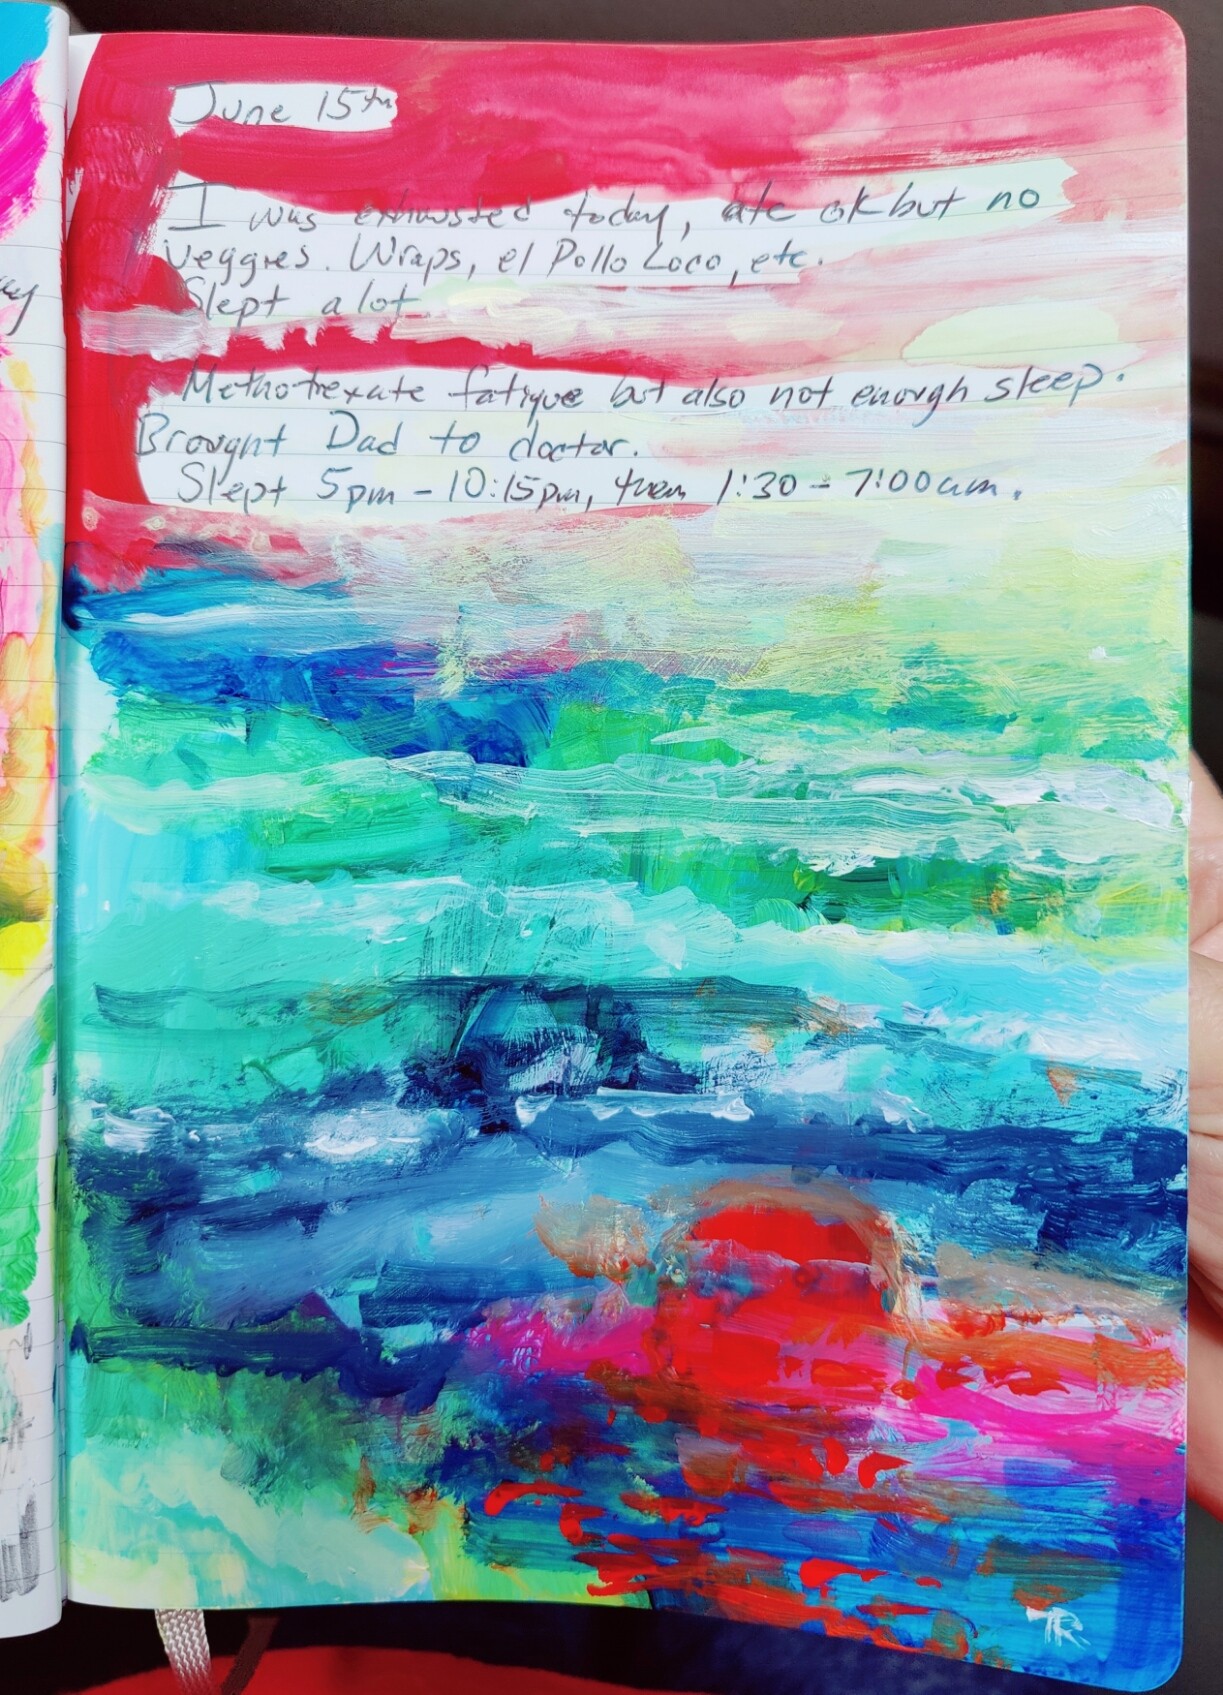 June 15th
I was exhausted today, ate ok but no
veggies. Wraps, el Pollo Loco, etc.
Slept a lot.
Methotrexate fatigue but also not enough sleep.
Brought Dad to doctor.
Slept 5pm - 10:15pm, then 1:30 - 7:00am.
TR